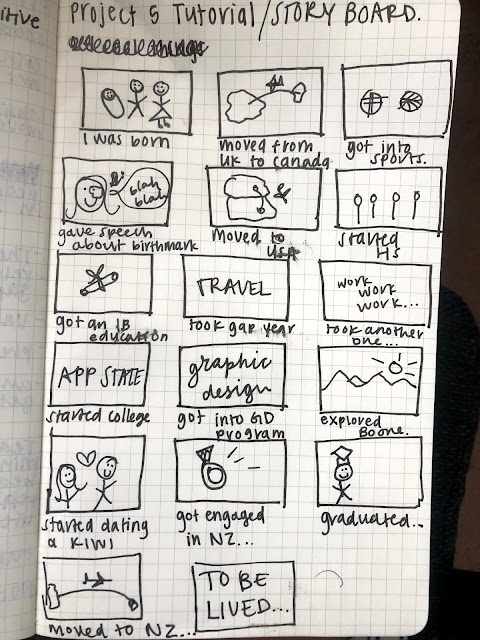 itive
Project 5 Tutorial/STORY BOARD.
I was born
moved from
UK to Canada
got into
sports.
blah
blah
gave speech
about birthmark
Moved to
USA
started
HS
got an IB
education
TRAVEL
took gap year
work
work
work...
took another
one...
APP STATE
started college
graphic
design
got into GD
program
explored
Boone.
started dating
a KIWI
got engaged
in NZ...
graduated...
moved to NZ...
TO BE
LIVED...